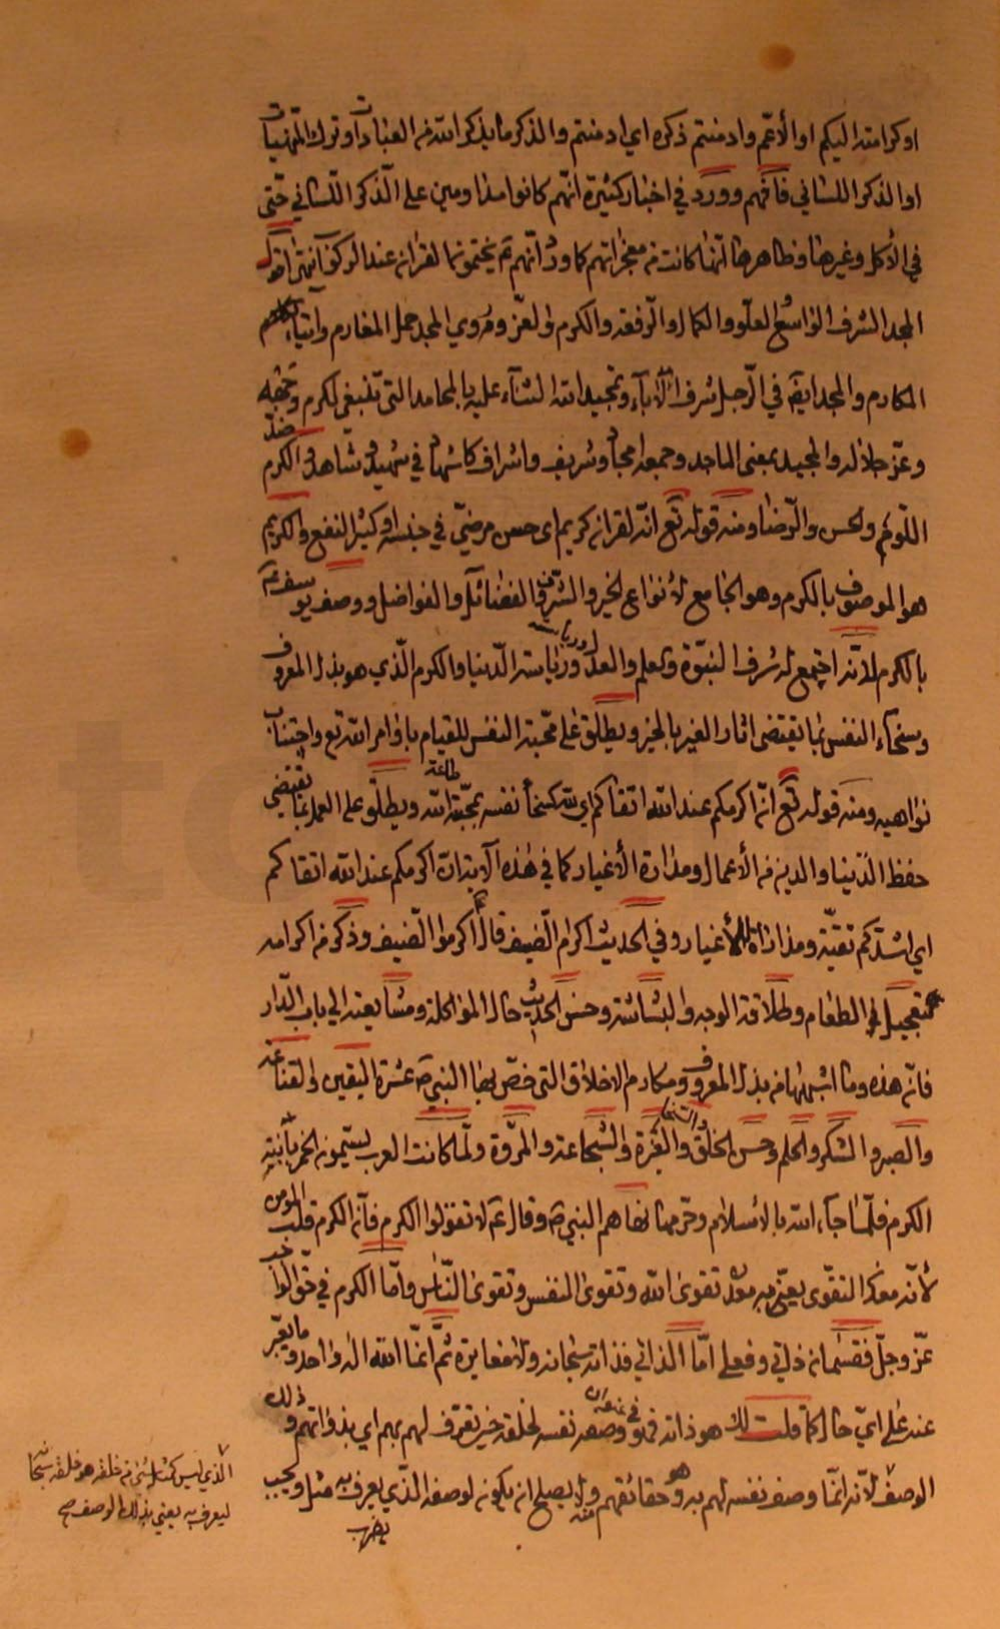 او كرامته اليكم او الأعم وادمنتم ذكره اي ادمنتم والذكر ما يذكر الله من العبادات او ترك المنهيات
او الذكر اللساني فافهم وورد في اخبار كثيرة انهم كانوا مداومين على الذكر اللساني حتى
في الأكل وغيرها وظاهرها انها كانت من معجزاتهم كما ورد انهم ع يختمون القران عند الركوب انتهى اقول
المجد الشرف الواسع العلو والكمال والرفعة والكرم والعز ومروي المجد حمل المغارم وابتناء
المكارم والمجد ايضا في الرجل شرف الآباء وتمجيد الله الثناء عليه بالمحامد التي تنبغي لكرم وجهه
وعز جلاله والمجيد بمعنى الماجد وجمعه امجاد وشريف واشراف كاشهاد في شهيد وشاهد والكرم ضد
اللؤم والحسن والرضا ومنه قوله تع انه لقران كريم اي حسن مرضي في جنسه او كثير النفع والكريم
هو الموصوف بالكرم وهو الجامع لأنواع الخير والشرف والفضائل والفواضل ووصف يوسف ع
بالكرم لانه اجتمع له شرف النبوة والعلم والعدل ورياسة الدنيا والكرم الذي هو بذل المعروف
وسخاء النفس بما يقتضي ايثار الغير بالخير ويطلق على محبة النفس للقيام باوامر الله تع واجتناب
نواهيه ومنه قوله تع ان اكرمكم عند الله اتقاكم اي نفسه بمحبة طاعة الله ويطلق على العمل بما يقتضي
حفظ الدنيا والدين من الأعمال ومداراة الأغيار كما في هذه الآية ان اكرمكم عند الله اتقاكم
اي اشدكم تقية ومداراة للأغيار وفي الحديث اكرام الضيف قال اكرموا الضيف وذكر من اكرامه
تعجيل الطعام وطلاقة الوجه والبشاشة وحسن الحديث حال المواكلة ومشايعته الى باب الدار
فان هذه وما اشبهها من بذل المعروف ومكارم الاخلاق التي خص بها النبي ص عشرة اليقين والقناعة
والصبر والشكر والحلم وحسن الخلق والسخاء والغيرة والشجاعة والمروة ولما كانت العرب يسمون الخمر بابنة
الكرم فلما جاء الله بالاسلام وحرمها نهاهم النبي ص وقال ع لا تقولوا الكرم فان الكرم قلب المومن
لأنه معدن التقوى يعني به معدن تقوى الله وتقوى النفس وتقوى الناس واما الكرم في حق الواحد
عز وجل فقسمان ذاتي وفعلي اما الذاتي فذاته سبحانه ولا مغايرة ثم انما الله اله واحد وما يعبر
عنه على اي حال كلما قلت لك هو ذاته فهو في وصف نفسه لخلقه حين تعرف لهم بهم اي بذواتهم وذلك
الوصف لانه انما وصف نفسه لهم به وهو حقائقهم ولا يصلح ان يكون لوصفه الذي يعرف به مثل ويجب
يضرب
الذي ليس كمثله شئ من خلقه هو خلقه سبحانه
ليعرف به يعني بذلك الوصف صح